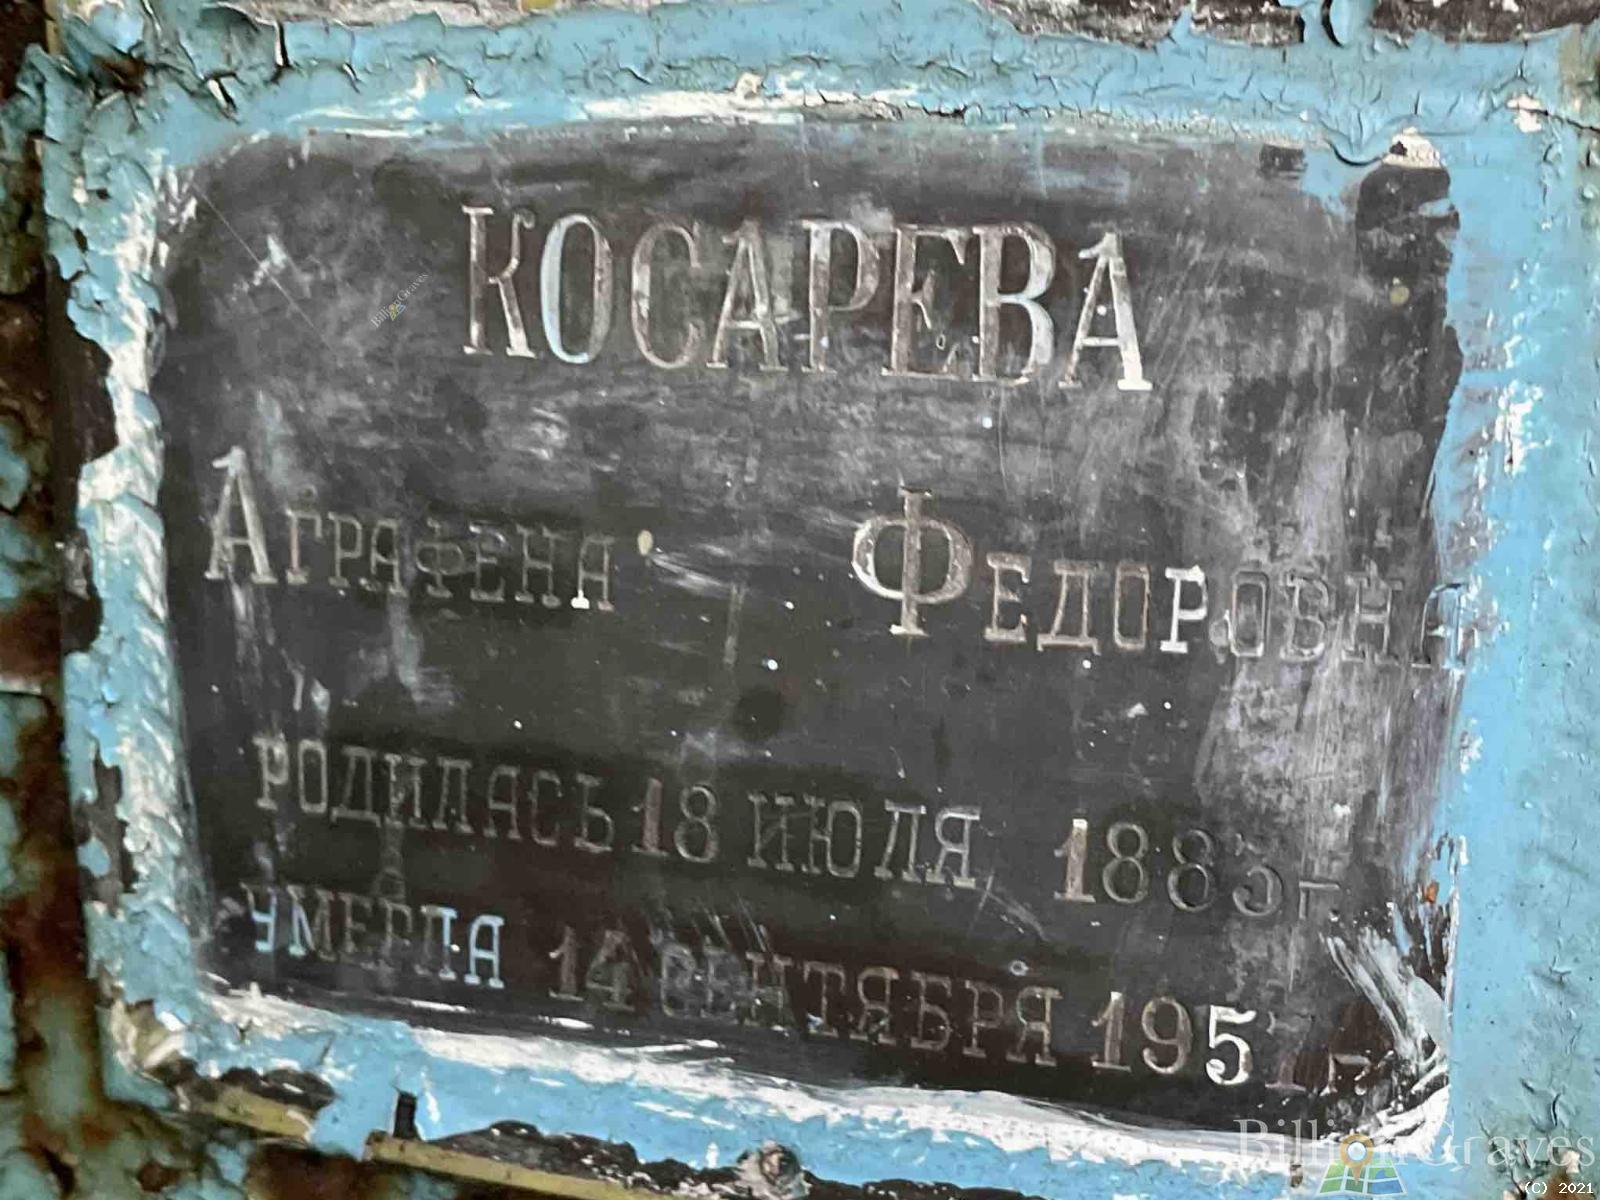 КОСАРЕВА
АГРАФЕНА ФЕДОРОВНА
РОДИЛАСЬ 18 ИЮЛЯ 1883 г.
УМЕРЛА 14 СЕНТЯБРЯ 1957 г.
BillionGraves
BillionGraves
(C) 2021